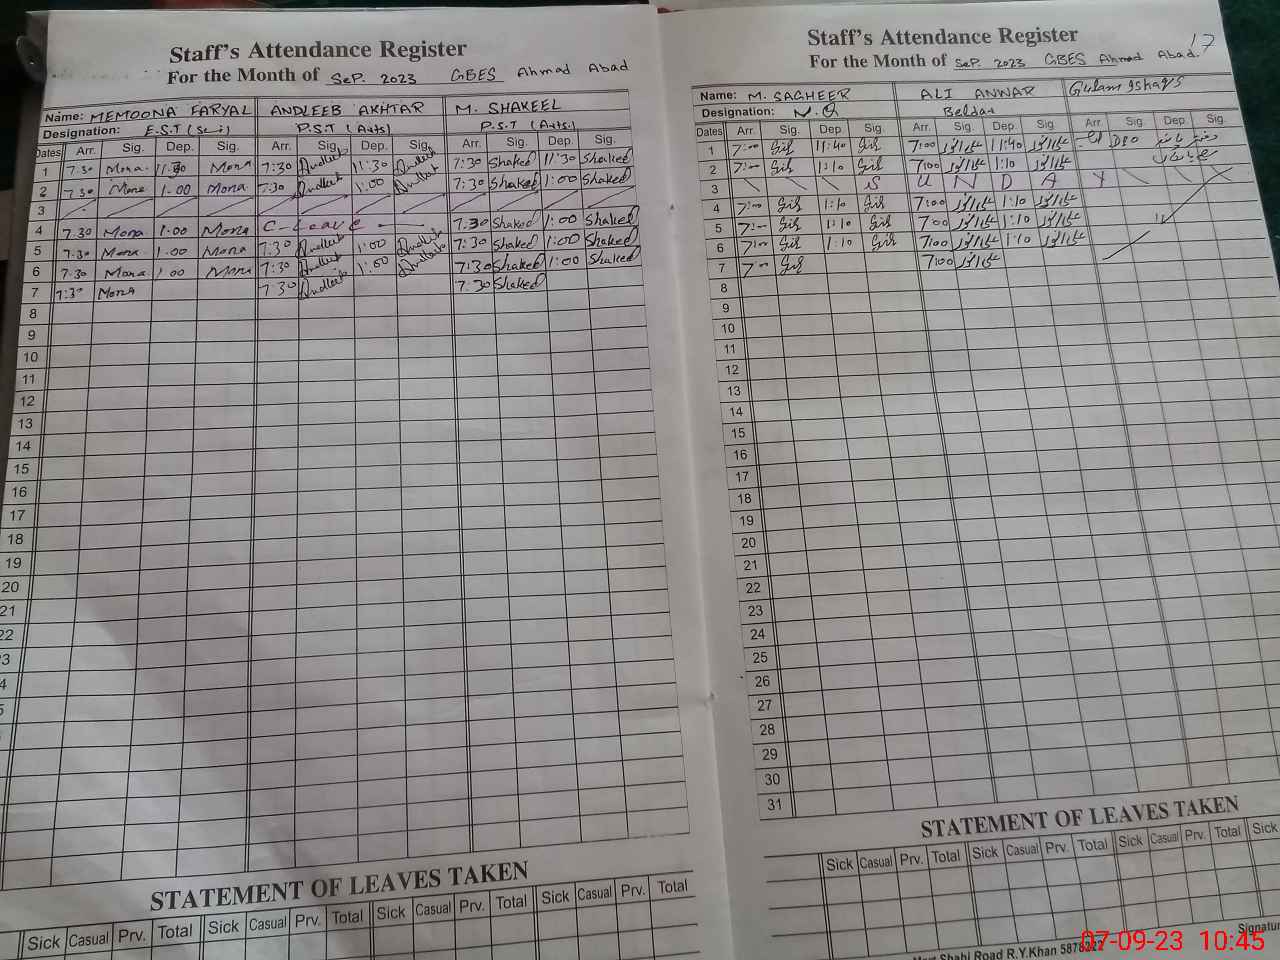 Staff's Attendance Register
For the Month of SeP. 2023 GBES Ahmad Abad
Name: MEMOONA FARYAL ANDLEEB AKHTAR M. SHAKEEL
Designation: E.S.T (Sci) P.S.T (Arts) P.S.T (Arts.)
Dates Arr. Sig. Dep. Sig. Arr. Sig. Dep. Sig. Arr. Sig. Dep. Sig.
1 7.30 Mona. 11.30 Mona 7:30 Andleeb 11:30 Andleeb 7:30 Shakeel 11:30 Shakeel
2 7.30 Mona 1.00 Mona 7:30 Andleeb 1:00 Andleeb 7:30 Shakeel 1:00 Shakeel
3
4 7.30 Mona 1.00 Mona C-Leave 7.30 Shakeel 1:00 Shakeel
5 7.30 Mona 1.00 Mona 7.30 Andleeb 1:00 Andleeb 7:30 Shakeel 1:00 Shakeel
6 7.30 Mona 1.00 Mona 7:30 Andleeb 1:00 Andleeb 7:30 Shakeel 1:00 Shakeel
7 7:30 Mona 7:30 Andleeb 7:30 Shakeel
8
9
10
11
12
13
14
15
16
17
18
19
20
21
22
STATEMENT OF LEAVES TAKEN
Sick Casual Prv. Total Sick Casual Prv. Total Sick Casual Prv. Total Sick Casual Prv. Total
17
Staff's Attendance Register
For the Month of SeP. 2023 GBES Ahmad Abad.
Name: M. SAGHEER ALI ANWAR Gulam Ishaq
Designation: N.Q Beldar
Dates Arr. Sig. Dep. Sig. Arr. Sig. Dep. Sig. Arr. Sig. Dep. Sig.
1 7:00 11:40 7:00 11:40 DEO
2 7:00 1:10 7:00 1:10
3 S U N D A Y
4 7:00 1:10 7:00 1:10
5 7:00 1:10 7:00 1:10
6 7:00 1:10 7:00 1:10
7 7:00 7:00
8
9
10
11
12
13
14
15
16
17
18
19
20
21
22
23
24
25
26
27
28
29
30
31
STATEMENT OF LEAVES TAKEN
Sick Casual Prv. Total Sick Casual Prv. Total Sick Casual Prv. Total Sick
Shahi Road R.Y.Khan
07-09-23 10:45